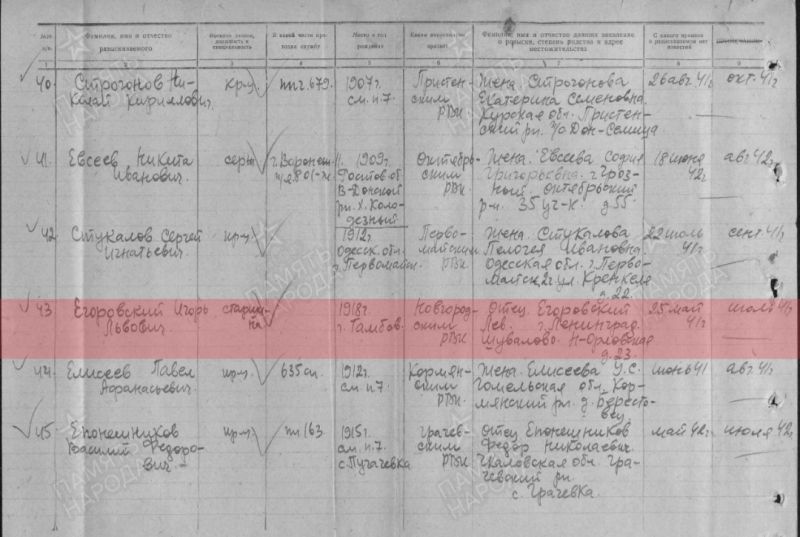 №№ п/п.
Фамилия, имя и отчество разыскиваемого
Военное звание, должность и специальность
В какой части проходил службу
Место и год рождения
Каким военкоматом призван
Фамилия, имя и отчество давших заявление о розыске, степень родства и адрес местожительства
С какого времени о разыскиваемом нет известий
1
40. Строгонов Николай Кириллович.
кр-ц
ппс. 679.
1907г. см. п. 7.
Пристенским РВК
Жена Строгонова Екатерина Семеновна. Курская обл. Пристенский рн. п/о Дон-Семица
26 авг. 41г
окт. 41г
41. Евсеев Никита Иванович.
серж
г. Воронеж
1909г. Ростов. об. В-Донской рн. х. Колодезный
Октябрьским РВК.
Жена. Евсеева София Григорьевна. г. Грозный. Октябрьский р-н. 35 уч-к. д. 55
18 июня 42г
авг 42г.
42. Стукалов Сергей Игнатьевич.
кр-ц
1912г. Одесск. обл. г. Первомайск.
Первомайским РВК
Жена. Стукалова Пелогея Ивановна. Одесская обл. г. Первомайск 2г ул. Кренкеля д. 22.
22 июль 41г.
сент. 41г
43 Егоровский Игорь Львович.
старшина
1918г. г. Тамбов.
Новгородским РВК
Отец Егоровский Лев. г. Ленинград. Шувалово Н-Орловская д. 23.
25 май 41г
июль 41г
44. Елисеев Павел Афанасьевич.
кр-ц.
635 сп.
1912г. см. п. 7
Кормянским РВК.
Жена. Елисеева У. С. Гомельская обл. Кормянский рн. д. Берестовец
июнь 41
авг 41г.
45 Епонешников Василий Федорович.
кр-ц
пп 163.
1915г. см. п. 7. с. Пугачевка
Грачевским РВК
Отец Епонешников Федор Николаевич. Чкаловская обл. Грачевский рн. с. Грачевка.
май 42г.
июля 42г.
ПАМЯТЬ НАРОДА